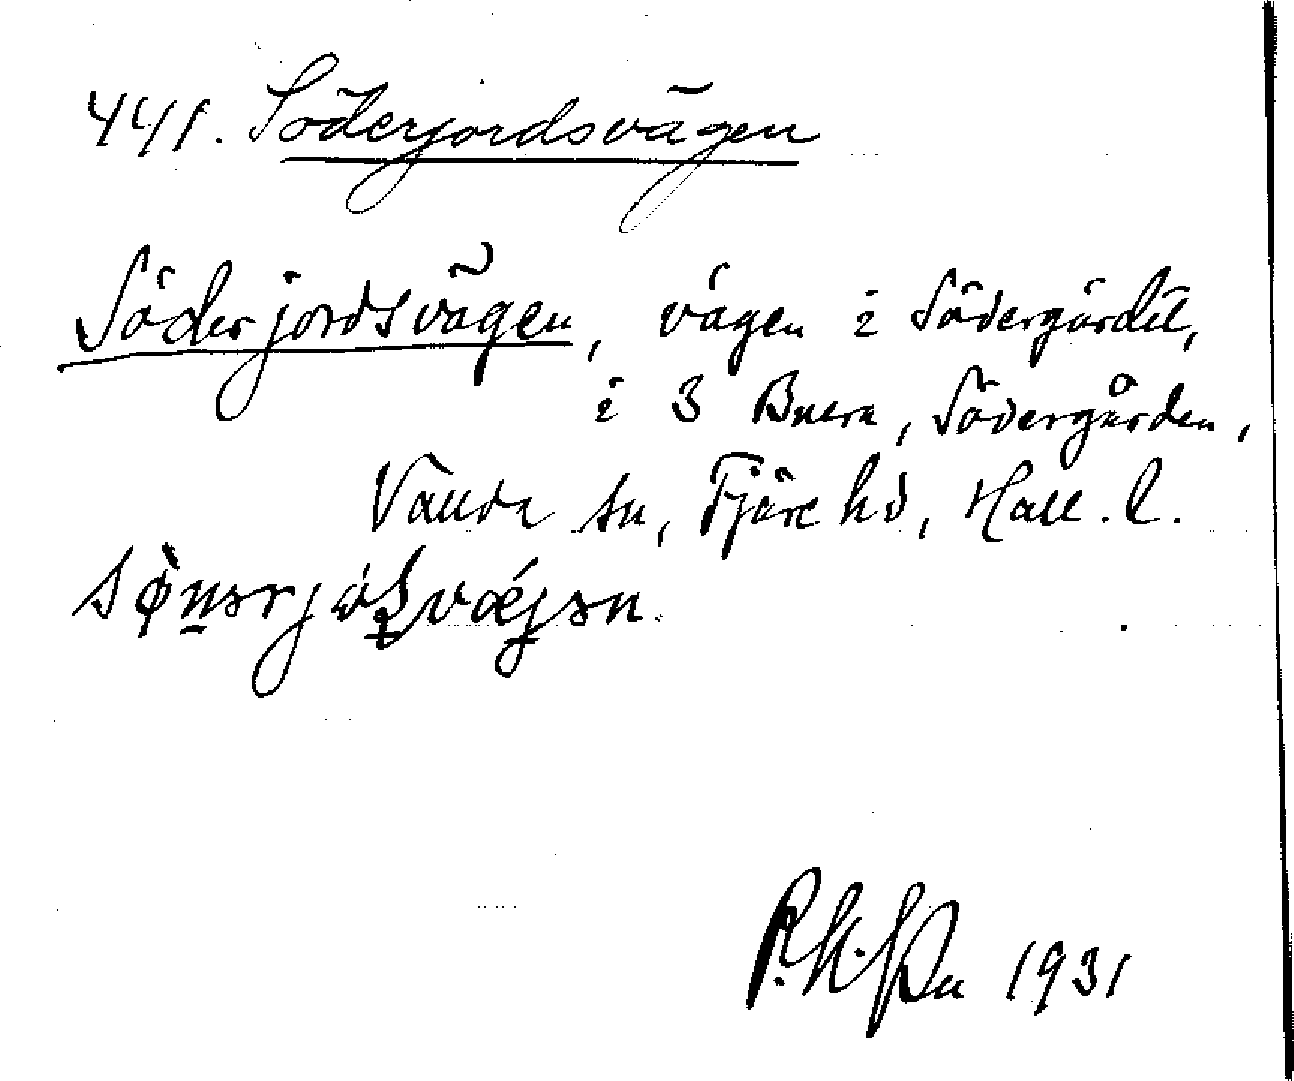 441. Söderjordsvägen
Söderjordsvägen, vägen i Södergärdet,
i 3 Buera, Södergården,
Vanda sn, Fjäre hd, Hall. l.
1931